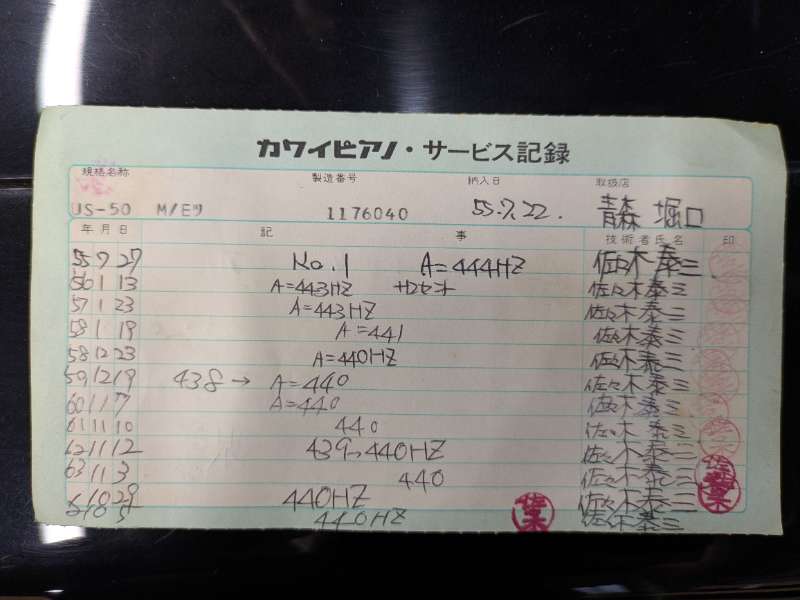 カワイピアノ・サービス記録
規格名称 製造番号 納入日 取扱店
US-50 M/Eツ 1176040 55.7.22. 青森 堀口
年月日 記事 技術者氏名 印
55 7 27 No.1 A=444HZ 佐々木泰三
56 1 13 A=443HZ 佐々木泰三
57 1 23 A=443HZ 佐々木泰三
58 1 19 A=441 佐々木泰三
58 12 23 A=440HZ 佐々木泰三
59 12 19 438→A=440 佐々木泰三
60 11 7 A=440 佐々木泰三
61 11 10 440 佐々木泰三
62 11 12 439→440HZ 佐々木泰三
63 11 3 440 佐々木泰三
10 29 440HZ 佐々木泰三
440HZ 佐々木泰三